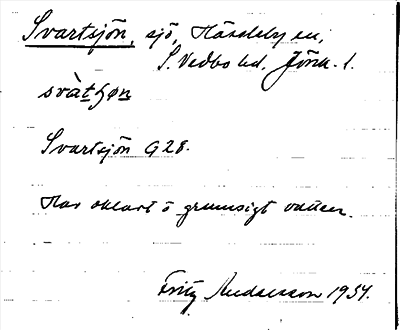 Svartsjön, sjö, Hässleby sn,
S. Vedbo hd, Jönk. l.
svàtʃøn
Svartsjön G 28.
Har oklart o grumsigt vatten.
Fritz Andersson 1934.